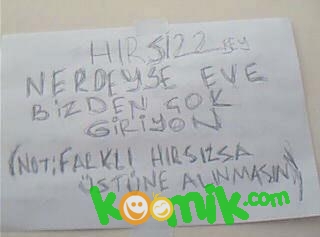 HIRSIZZ BEY
NERDEYSE EVE
BİZDEN ÇOK
GİRİYON
(NOT: FARKLI HIRSIZSA
ÜSTÜNE ALINMASIN)
koomik.com